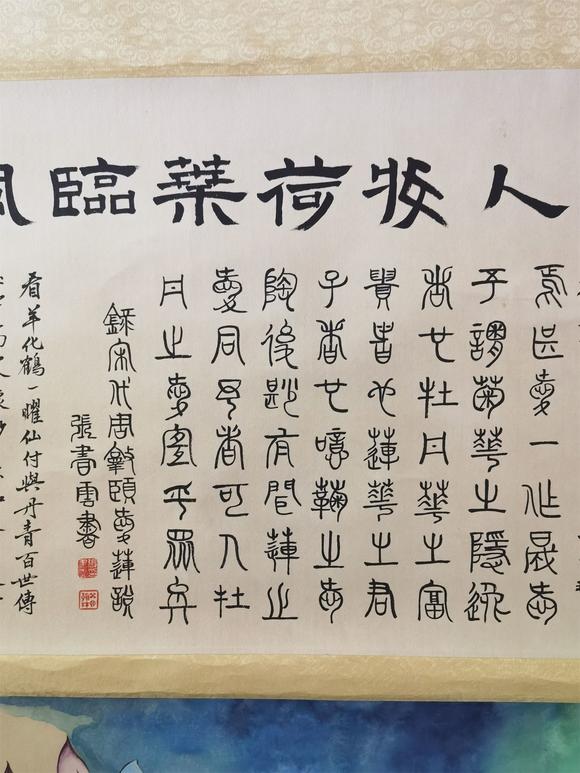 人妝荷葉臨
予謂菊華之隱逸
者也牡丹華之富
貴者也蓮華之君
子者也噫鞠之愛
陶後尠有聞蓮之
愛同予者可人牡
丹之愛宜乎眾矣
錄宋代周敦頤愛蓮說
張書雲書
看羊化鶴一曜仙付與丹青百世傳